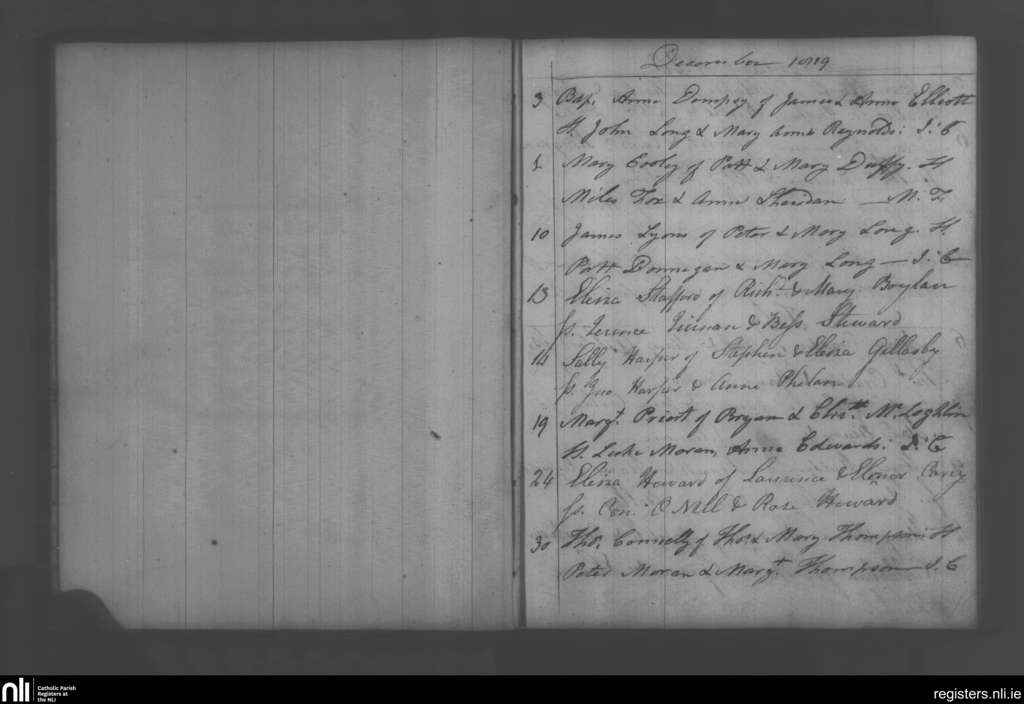 December 1819
3 Bap. Anne Dempsy of James & Anne Elliott
St. John Long & Mary Anne Reynolds: J. C
1 Mary Cooley of Patt & Mary Duffy. St
Miles Fox & Anne Sheridan — M. F.
10 James Lyons of Peter & Mary Long. St.
Patt Donnegan & Mary Long — J. C
13 Eliza Stafford of Richd. & Mary Boylan
Ss. Terence Kiernan & Bess Steward
14 Sally Harper of Stephen & Eliza Gillasby
Ss. Jno Harper & Anne Phelan
19 Margt. Priest of Bryan & Elizth. McLoghlin
St. Luke Moran, Anne Edwards: J. C
24 Eliza Howard of Lawrence & Elonor Carey
Ss. Con: O Neil & Rose Howard
30 Thos. Connelly of Thos. & Mary Thompson: St
Peter Moran & Margt. Thompson — J. C
nli Catholic Parish
Registers at
the NLI
registers.nli.ie